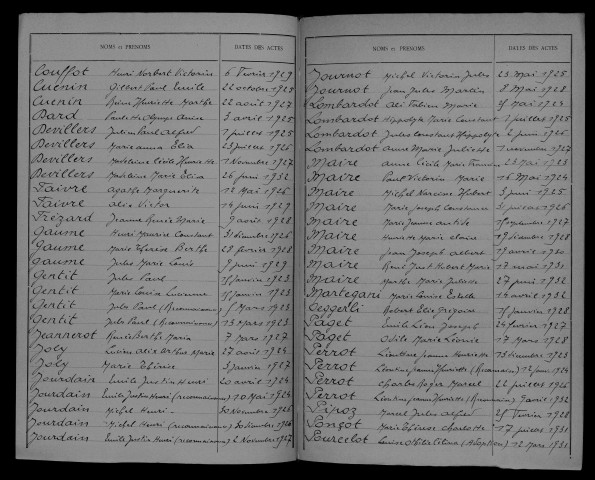 NOMS et PRENOMS DATES DES ACTES
Couffot Henri Norbert Victorin 6 Fevrier 1929
Cuenin Gilbert Paul Emile 22 octobre 1925
Cuenin Henriette Marthe 22 août 1927
Bard Paulette 3 avril 1925
Devillers Julien Paul Alfred 1 juillet 1925
Devillers Maria Anna Elia 23 juillet 1926
Devillers Madeleine Cécile 1 Novembre 1927
Devillers Madeleine Marie Elisa 26 juin 1932
Faivre Agathe Marguerite 12 Mai 1926
Faivre Victor 14 juin 1929
Frézard Jeanne Marie 9 avril 1928
Gaume Henri Maurice Constant 31 décembre 1926
Gaume Marie Thérèse Berthe 28 février 1928
Gaume Jules Marie Louis 9 juin 1929
Gentit Jules Paul janvier 1923
Gentit Marie Louisa Lucienne janvier 1923
Gentit Jules Paul (Reconnaissance) Mars 1923
Gentit Jules Paul (Reconnaissance) 13 Mars 1923
Jeannerot Berthe Maria 7 Mars 1927
Joly Arthur Marie 27 août 1924
Joly Marie Thérèse 3 janvier 1927
Jourdain Emile Justin Henri 20 avril 1924
Jourdain Emile Justin Henri (reconnaissance) 10 Mai 1924
Jourdain Michel Henri 30 Novembre 1926
Jourdain Michel Henri (reconnaissance) 30 1926
Jourdain Emile Justin Henri (reconnaissance) 2 Novembre 1927
NOMS et PRENOMS DATES DES ACTES
Journot Michel Victorin Jules 23 Mai 1925
Journot Jean Jules Martin 8 Mai 1928
Lombardot Marie Mai 1923
Lombardot Hippolyte Marie Constant 1 juillet 1925
Lombardot Jules Constant Hippolyte 2 juin 1926
Lombardot Anne Marie Juliette 1 novembre 1927
Maire Anne Cécile Marie 23 Mai 1923
Maire Paul Victorin Marie 16 Mai 1924
Maire Michel Narcisse Hubert 3 juin 1925
Maire Marie Joseph Constance 1926
Maire Marie Jeanne septembre 1927
Maire Henriette Marie 19 décembre 1928
Maire Jean Joseph Albert 17 avril 1930
Maire René Just Hubert Marie 17 mai 1931
Maire Marthe Marie Juliette 27 juin 1932
Martegani Marie Louise Estelle 14 avril 1932
Oesgerli Robert janvier 1928
Paget Emile Lien Joseph 24 février 1927
Paget Odile Marie Léonie 17 Mars 1928
Perrot Jeanne Henriette 13 décembre 1923
Perrot Jeanne Henriette 12 juin 1924
Perrot Charles Roger Marcel 22 juillet 1926
Perrot Jeanne Henriette 9 avril 1932
Pipoz Marcel Jules Alfred 25 février 1928
Ponçot Marie Thérèse Charlotte 17 juillet 1931
Pourcelot (Adoption) 12 Mars 1931